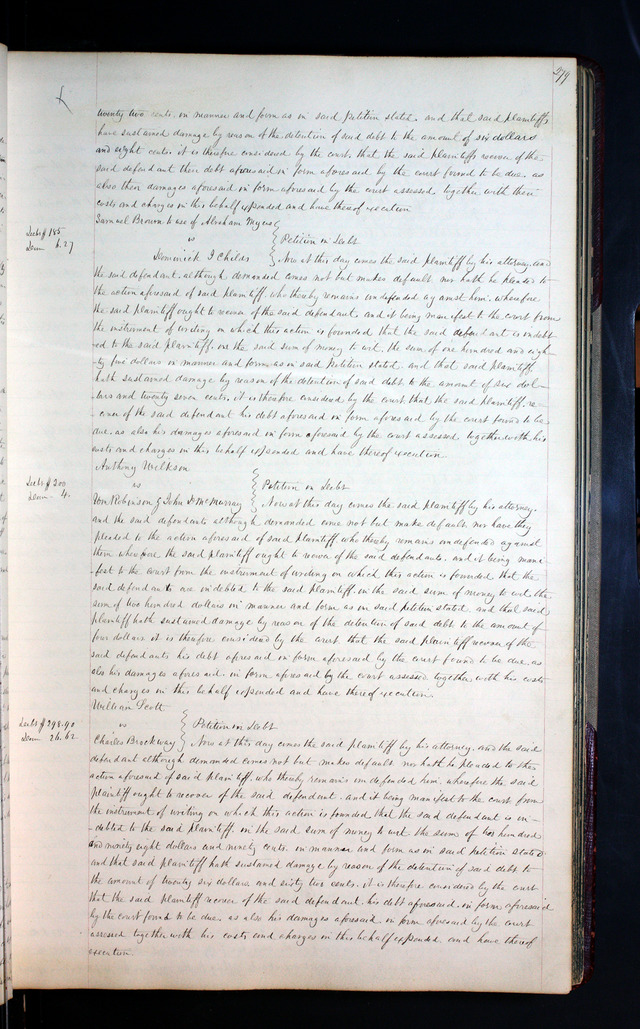 279
twenty two cents, in manner and form as in said petition stated, and that said plaintiffs
have sustained damage by reason of the detention of said debt to the amount of six dollars
and eight cents it is therefore considered by the court, that the said plaintiffs recover of the
said defendant their debt aforesaid in form aforesaid by the court found to be due, as
also their damages aforesaid in form aforesaid by the court assessed together with their
costs and charges in this behalf expended and have thereof execution
Samuel Brown to use of Abraham Myers
Debt $185
Dam 6.27
vs
Petition in Debt
Domerick I Childs
Now at this day comes the said plaintiff by his attorney, and
the said defendant, although demanded comes not but makes default nor hath he pleaded to
the action aforesaid of said plaintiff, who thereby remains undefended against him, wherefore
the said plaintiff ought to recover of the said defendant, and it being manifest to the court from
the instrument of writing on which this action is founded that the said defendant is indebt
ed to the said plaintiff, in the said sum of money to wit, the sum of one hundred and eigh-
ty five dollars in manner and form as in said petition stated, and that said plaintiff
hath sustained damage by reason of the detention of said debt to the amount of six dol-
lars and twenty seven cents, it is therefore considered by the court that the said plaintiff, re-
cover of the said defendant his debt aforesaid in form aforesaid by the court found to be
due, as also his damages aforesaid in form aforesaid by the court assessed together with his
costs and charges in this behalf expended and have thereof execution
Anthony Wilkson
Debt $200
Dam 4.
vs
Petition in Debt
Wm Robinson & John D McMurray
Now at this day comes the said plaintiff by his attorney,
and the said defendants although demanded come not but make default nor have they
pleaded to the action aforesaid of said plaintiff who thereby remains undefended against
them wherefore the said plaintiff ought to recover of the said defendants, and it being mani-
fest to the court from the instrument of writing on which this action is founded that the
said defendants are indebted to the said plaintiff, in the said sum of money to wit, the
sum of two hundred dollars in manner and form as in said petition stated, and that said
plaintiff hath sustained damage by reason of the detention of said debt to the amount of
four dollars it is therefore considered by the court that the said plaintiff recover of the
said defendants his debt aforesaid in form aforesaid by the court found to be due, as
also his damages aforesaid in form aforesaid by the court assessed together with his costs
and charges in this behalf expended and have thereof execution
William Scott
Debt $298.90
Dam 26.62
vs
Petition in Debt
Charles Brockway
Now at this day comes the said plaintiff by his attorney, and the said
defendant although demanded comes not but makes default nor hath he pleaded to the
action aforesaid of said plaintiff, who thereby remains undefended him, wherefore the said
plaintiff ought to recover of the said defendant, and it being manifest to the court from
the instrument of writing on which this action is founded that the said defendant is in-
-debted to the said plaintiff, in the said sum of money to wit the sum of two hundred
and ninety eight dollars and ninety cents, in manner and form as in said petition stated
and that said plaintiff hath sustained damage by reason of the detention of said debt to
the amount of twenty six dollars and sixty two cents, it is therefore considered by the court
that the said plaintiff recover of the said defendant, his debt aforesaid, in form aforesaid
by the court found to be due, as also his damages aforesaid in form aforesaid by the court
assessed together with his costs and charges in this behalf expended and have thereof
execution